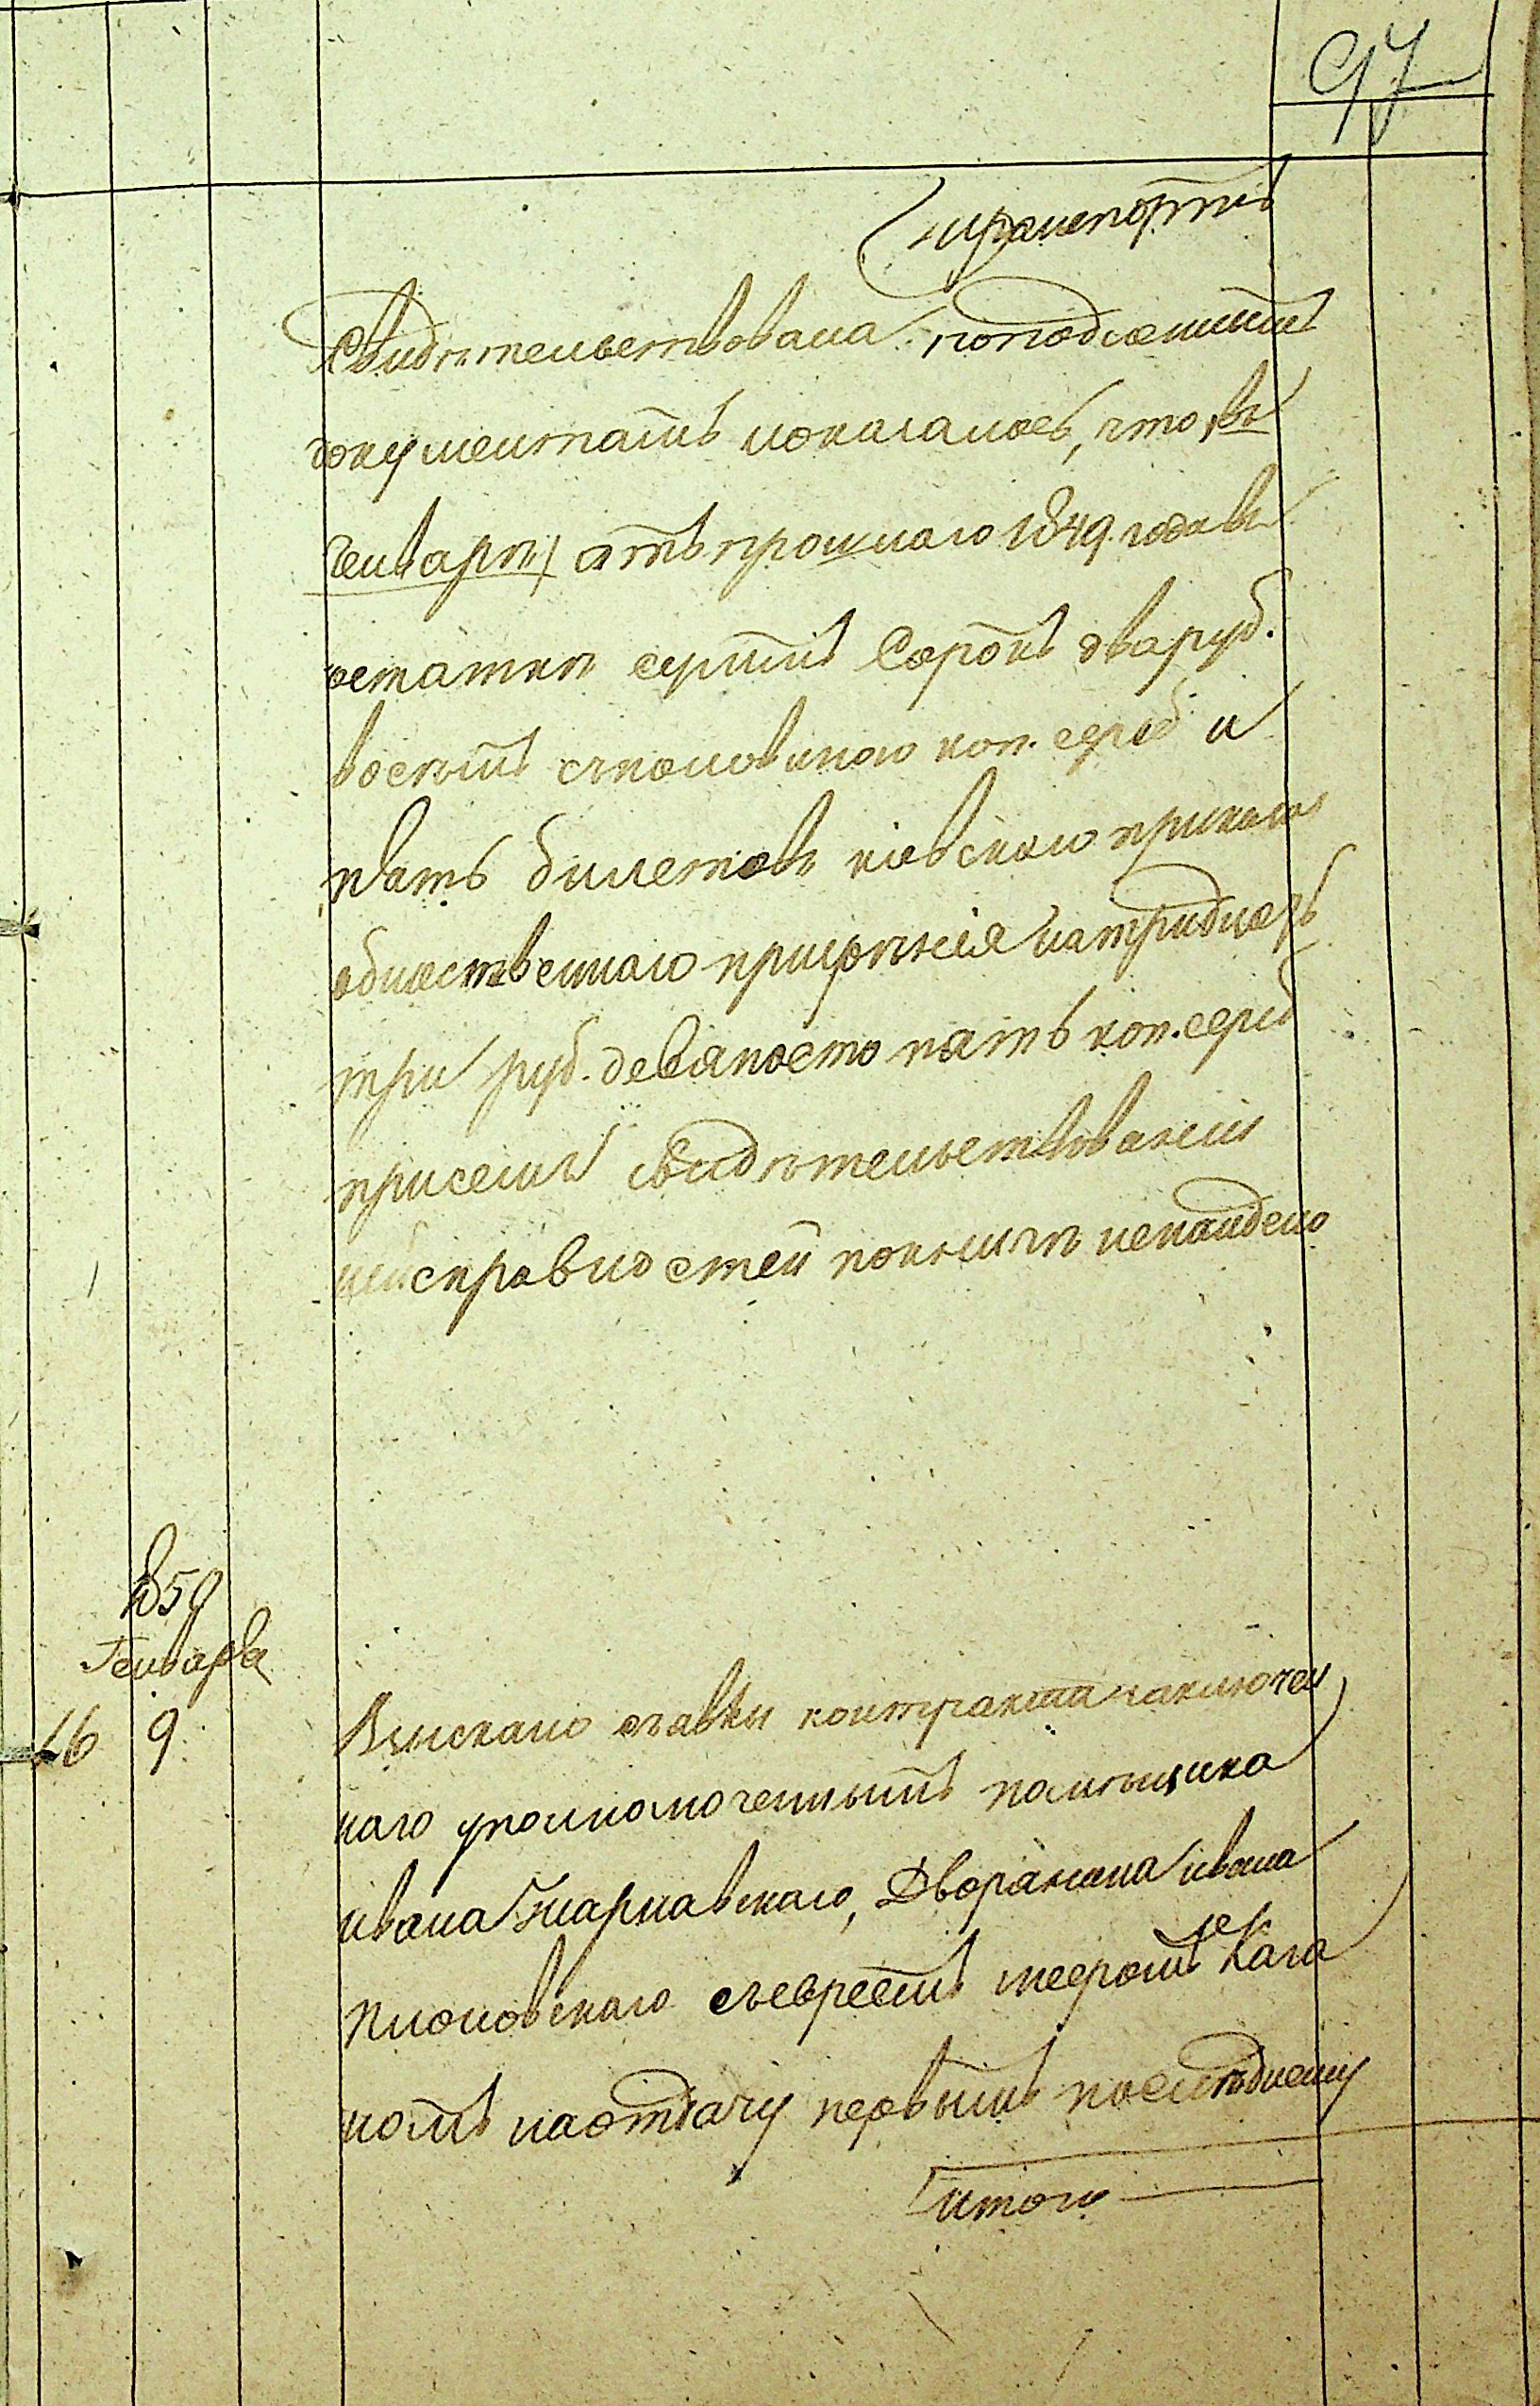 97
транспортъ
Свидѣтельствована, поподленнымъ
документамъ показалось, что въ
Генварѣ, отъ прошлаго 1849. года въ
остаткѣ суммъ Сорокъ два руб.
восемь съполовиною коп. сереб и
пять билетовъ кіевскаго приказа
общественнаго призрѣнія натридцать
три руб. девяносто пять коп. сереб
присемъ свидѣтельствованіи
неисправностей никакихъ ненайдено
1850
Генваря
16 9. Взыскано съявки контракта заключен
наго уполномоченнымъ помѣщика
ивана Тарнавскаго, Дворянина ивана
съевреемъ
комъ наотдачу первымъ послѣднему
итого